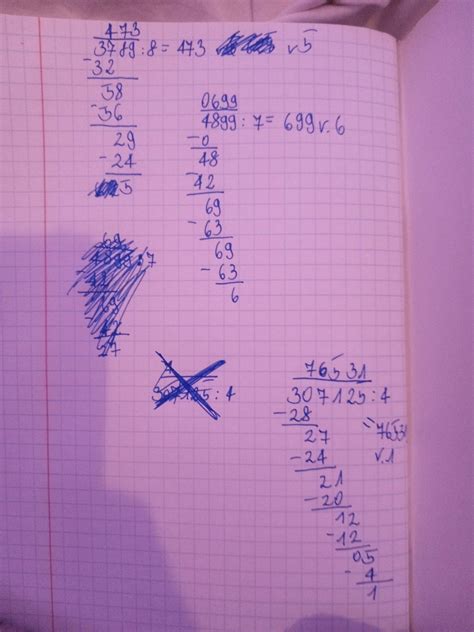 473
3789:8=473 r5
-32
58
-56
29
-24
5
0699
4899:7=699 r.6
-0
48
-42
69
-63
69
-63
6
307125:4
76531
307125:4
-28
=76531
27
r.1
-24
21
-20
12
-12
05
-4
1